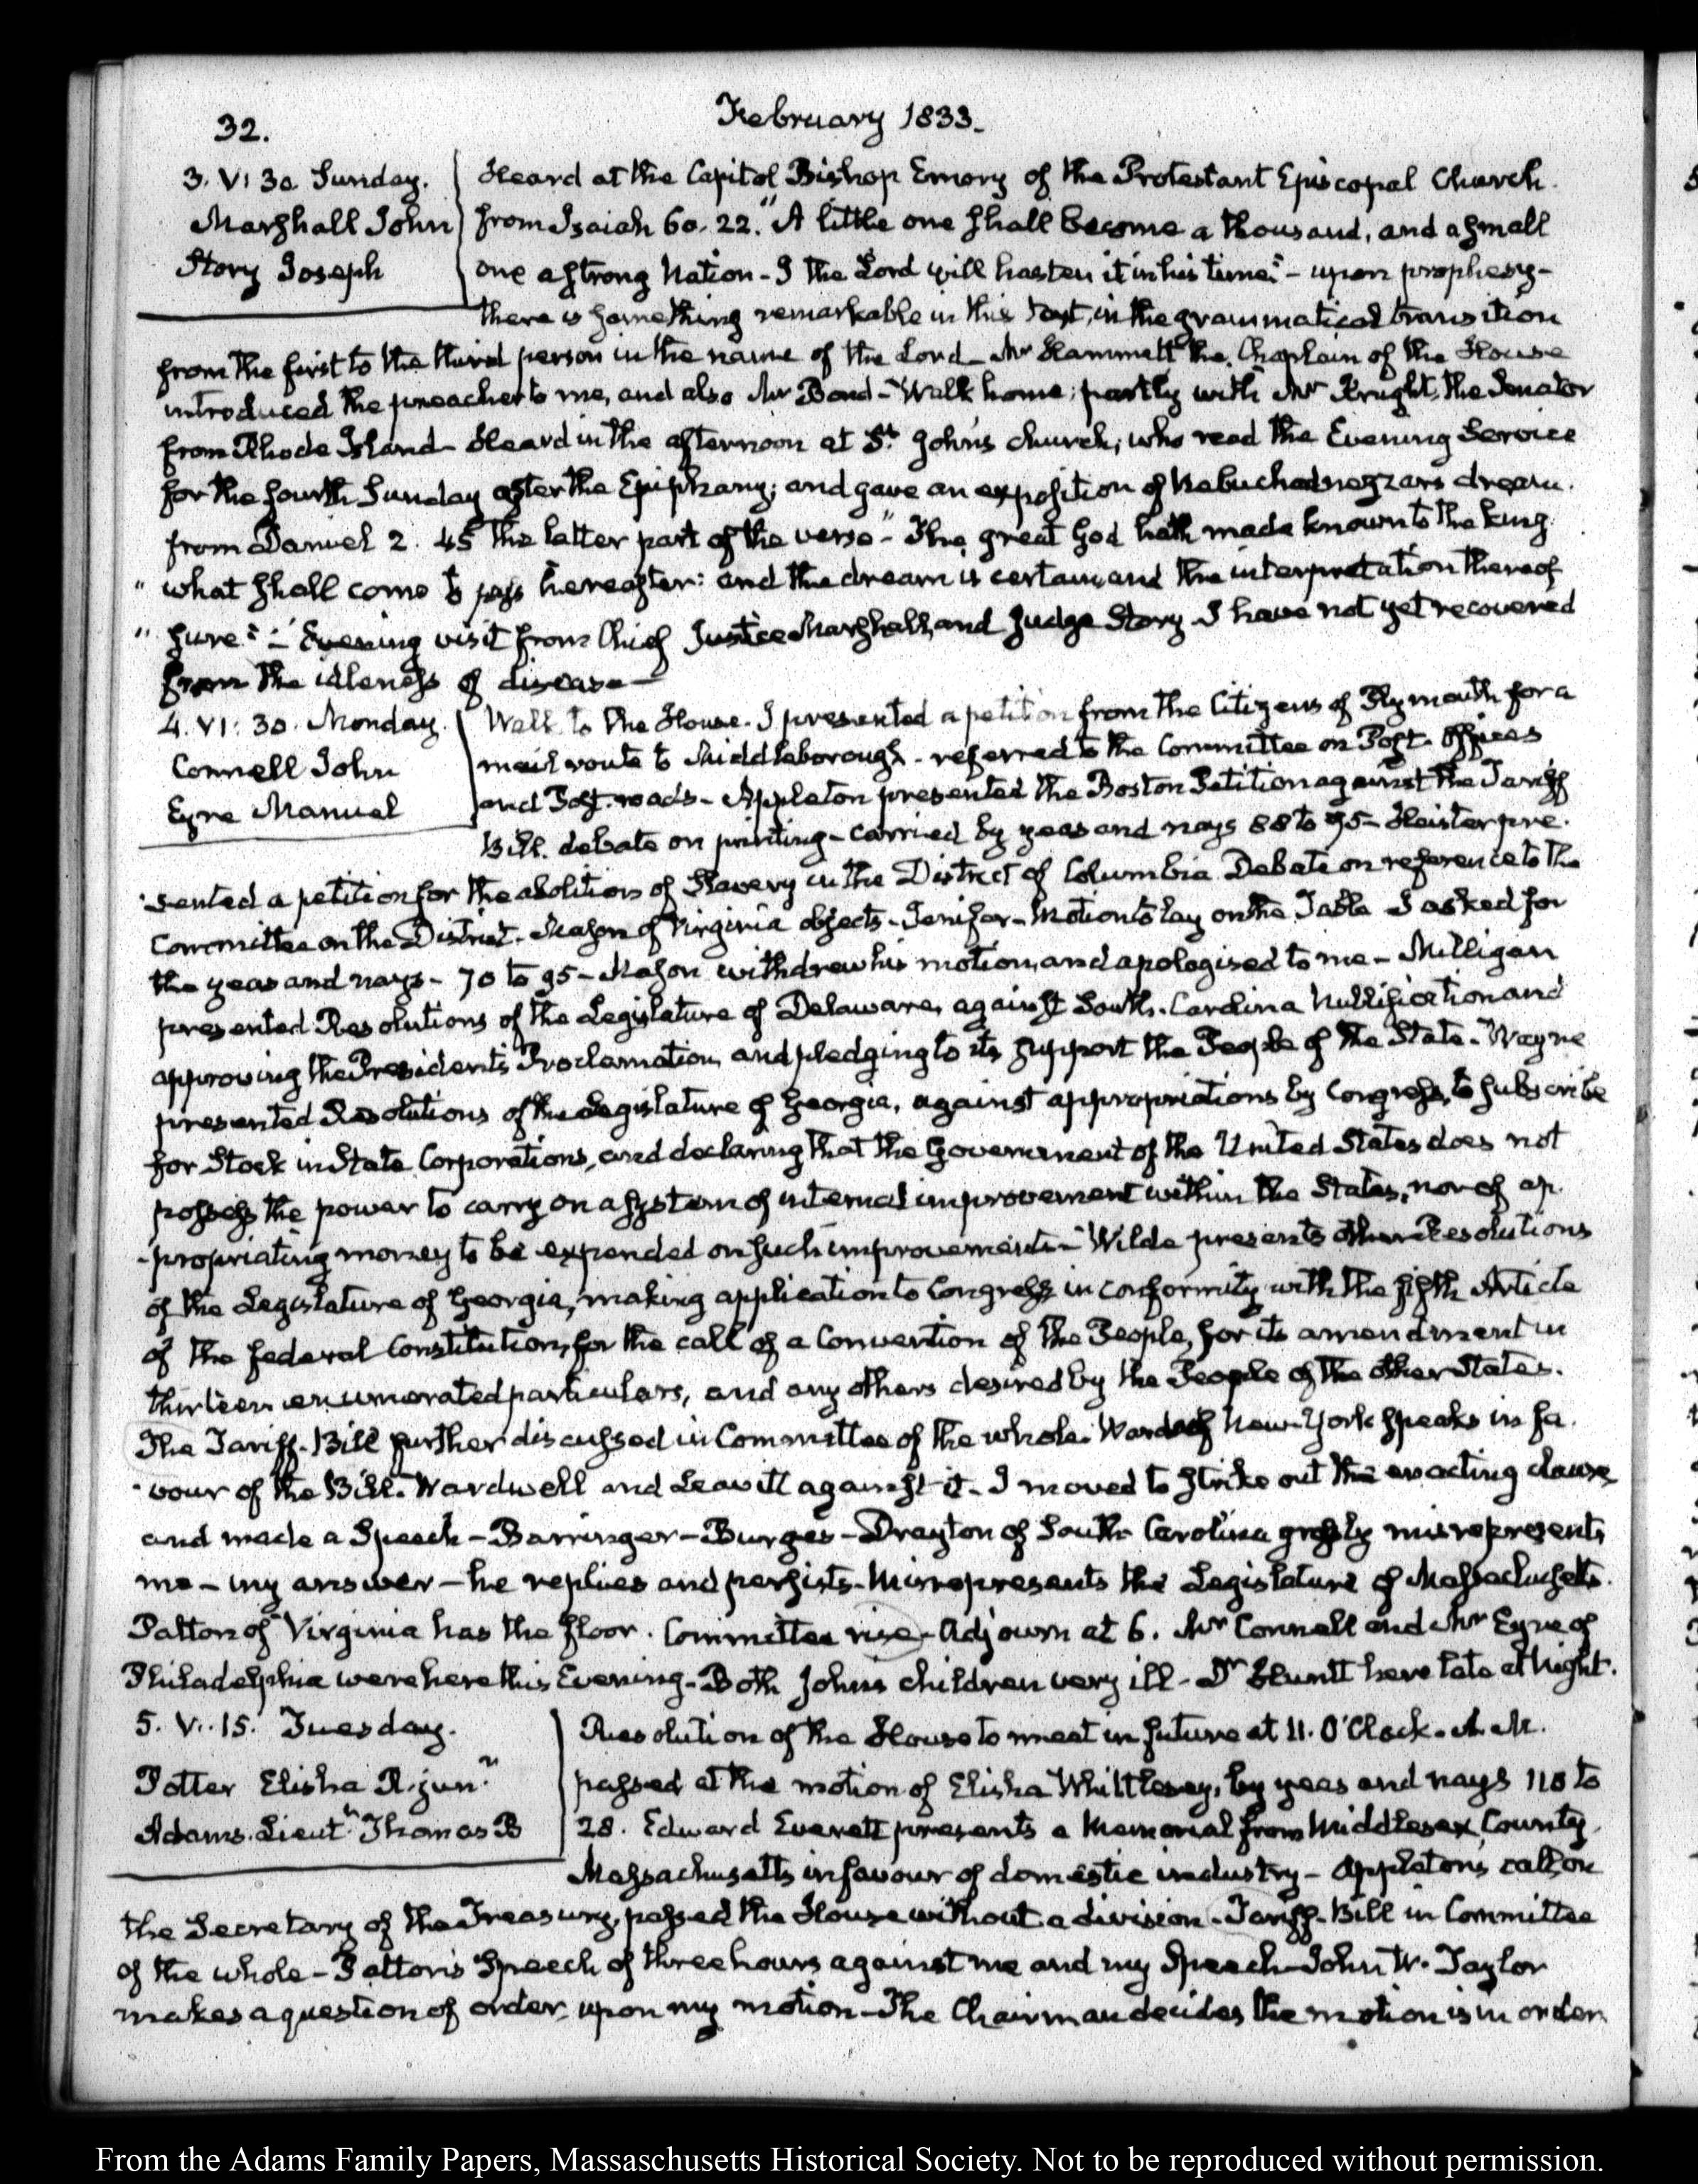 32.
February 1833.
3. V: 30. Sunday.
Marshall John
Story Joseph
Heard at the Capitol Bishop Emory of the Protestant Episcopal Church.
from Isaiah 60. 22. "A little one shall become a thousand, and a small
one a strong Nation - I the Lord will hasten it in his time" - upon prophesy -
there is something remarkable in this text, in the grammatical transition
from the first to the third person in the name of the Lord - Mr Hammett the Chaplain of the House
introduced the preacher to me, and also Mr Bond - Walk home; partly with Mr Knight, the Senator
from Rhode Island - Heard in the afternoon at St. John's church, who read the Evening Service
for the fourth Sunday after the Epiphany; and gave an exposition of Nebuchadnezzars dream.
from Daniel 2. 45 the latter part of the verse - "The great God hath made known to the king
" what shall come to pass hereafter: and the dream is certain, and the interpretation thereof
" sure" - Evening visit from Chief Justice Marshall, and Judge Story. I have not yet recovered
from the idleness of disease -
4. VI: 30. Monday.
Connell John
Eyre Manuel
Walk to the House. I presented a petition from the Citizens of Plymouth for a
mail route to Middleborough - referred to the Committee on Post-Offices
and Post-roads - Appleton presented the Boston Petition against the Tariff
Bill. debate on printing - carried by yeas and nays 88 to 75 - Heister pre-
-sented a petition for the abolition of Slavery in the District of Columbia. Debate on reference to the
Committee on the District. Mason of Virginia objects - Jenifer - Motion to lay on the Table I asked for
the yeas and nays - 70 to 95 - Mason withdrew his motion, and apologised to me - Milligan
presented Resolutions of the Legislature of Delaware, against South-Carolina Nullification and
approving the President's Proclamation, and pledging to its support the People of the State. - Wayne
presented Resolutions of the Legislature of Georgia, against appropriations by Congress, to subscribe
for Stock in State Corporations, and declaring that the Government of the United States does not
possess the power to carry on a system of internal improvement within the States, nor of ap-
-propriating money to be expended on such improvements - Wilde presents other Resolutions
of the Legislature of Georgia, making application to Congress in conformity with the fifth Article
of the federal Constitution, for the call of a Convention of the People, for its amendment in
thirteen enumerated particulars, and any others desired by the People of the other States.
The Tariff-Bill further discussed in Committee of the whole. Ward of New-York speaks in fa-
-vour of the Bill. Wardwell and Leavitt against it - I moved to strike out the enacting clause
and made a Speech - Barringer - Burges - Drayton of South Carolina grossly misrepresents
me - my answer - he replies and persists - Misrepresents the Legislature of Massachusetts.
Patton of Virginia has the floor. Committee rise - Adjourn at 6. Mr Connell and Mr Eyre of
Philadelphia were here this Evening - Both John's children very ill - Dr Huntt here late at Night.
5. V:.15. Tuesday.
Potter Elisha R. junr
Adams. Lieutt Thomas B
Resolution of the House to meet in future at 11. O'Clock. A.M.
passed at the motion of Elisha Whittlesey, by yeas and nays 118 to
28. Edward Everett presents a Memorial from Middlesex County,
Massachusetts in favour of domestic industry - Appleton's call on
the Secretary of the Treasury, passed the House without a division - Tariff-Bill in Committee
of the whole - Patton's Speech of three hours against me and my Speech - John W. Taylor
makes a question of order, upon my motion - The Chairman decides the motion is in order.
From the Adams Family Papers, Massachusetts Historical Society. Not to be reproduced without permission.